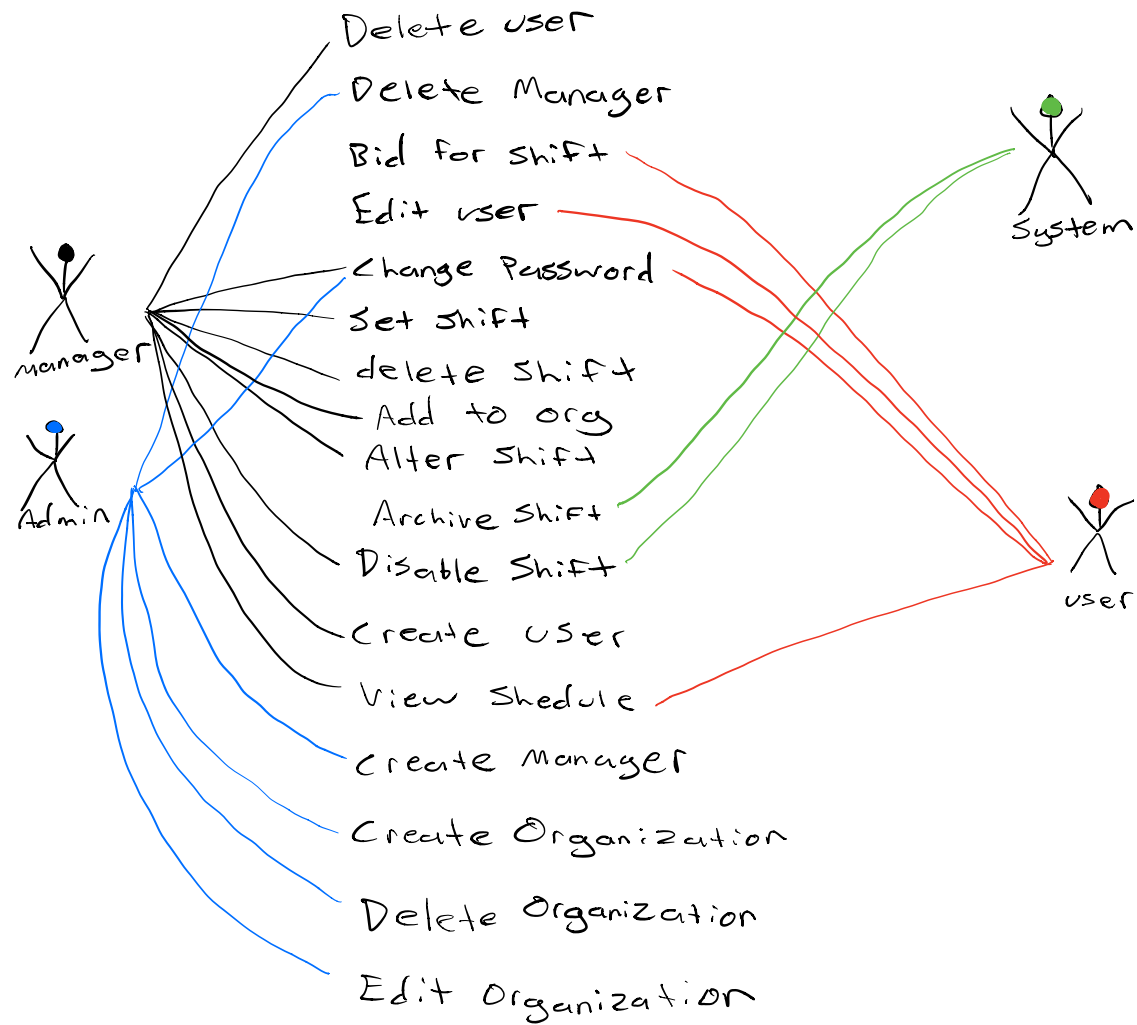 Delete user
Delete Manager
Bid for shift
Edit user
Change Password
Set shift
delete shift
Add to org
Alter Shift
Archive Shift
Disable Shift
Create user
View Shedule
Create Manager
Create Organization
Delete Organization
Edit Organization
Manager
Admin
System
user